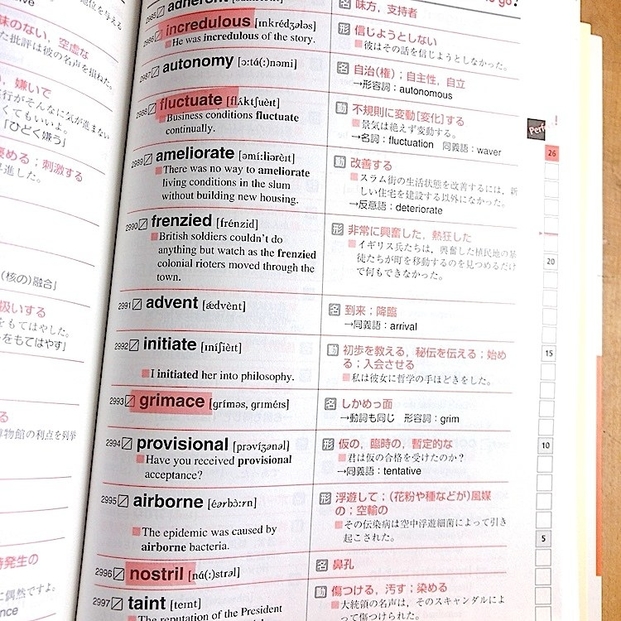 2985 adherent 名 味方，支持者
2986 incredulous [ɪnkrédʒələs] 形 信じようとしない
He was incredulous of the story. 彼はその話を信じようとしなかった。
2987 autonomy [ɔːtá(ː)nəmi] 名 自治(権)；自主性，自立
→形容詞：autonomous
2988 fluctuate [flʌ́ktʃuèɪt] 動 不規則に変動[変化]する
Business conditions fluctuate 景気は絶えず変動する。
continually. →名詞：fluctuation 同義語：waver
2989 ameliorate [əmíːliərèɪt] 動 改善する
There was no way to ameliorate スラム街の生活状態を改善するには，新
living conditions in the slum しい住宅を建設する以外になかった。
without building new housing. →反意語：deteriorate
2990 frenzied [frénzid] 形 非常に興奮した，熱狂した
British soldiers couldn't do イギリス兵たちは，興奮した植民地の暴
anything but watch as the frenzied 徒たちが町を移動するのを見つめるだけ
colonial rioters moved through the で何もできなかった。
town.
2991 advent [ǽdvènt] 名 到来；降臨
→同義語：arrival
2992 initiate [ɪníʃièɪt] 動 初歩を教える，秘伝を伝える；始め
る；入会させる
I initiated her into philosophy. 私は彼女に哲学の手ほどきをした。
2993 grimace [gríməs, grɪméɪs] 名 しかめっ面
→動詞も同じ 形容詞：grim
2994 provisional [prəvíʒənəl] 形 仮の，臨時の，暫定的な
Have you received provisional 君は仮の合格を受けたのか？
acceptance? →同義語：tentative
2995 airborne [éərbɔ̀ːrn] 形 浮遊して；(花粉や種などが)風媒
の；空輸の
The epidemic was caused by その伝染病は空中浮遊細菌によって引き
airborne bacteria. 起こされた。
2996 nostril [nɑ́(ː)strəl] 名 鼻孔
2997 taint [teɪnt] 動 傷つける，汚す；染める
The reputation of the President 大統領の名声は，そのスキャンダルによ
って傷つけられた。
to go!
26
20
15
10
5
味のない，空虚な
た批評は彼の名声を損ねた。
嫌いで
「ひどく嫌う」
める；刺激する
(核の)融合」
扱いする
をもてはやした。
をもてはやす」
博物館の利点を列挙
時発生の
に偶然ですよ。